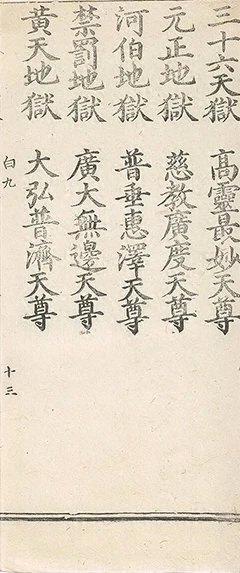 三十六天獄 高靈最妙天尊
元正地獄 慈教廣度天尊
河伯地獄 普垂惠澤天尊
禁罰地獄 廣大無邊天尊
黃天地獄 大弘普濟天尊
白九 十三